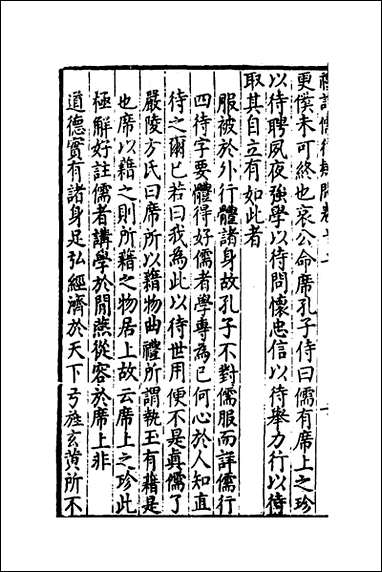 更僕未可終也哀公命席孔子侍曰儒有席上之珍
以待聘夙夜強學以待問懷忠信以待舉力行以待
取其自立有如此者
服被於外行體諸身故孔子不對儒服而詳儒行
四待字要體得好儒者學專為已何心於人知直
待之爾已若曰我為此以待世用便不是真儒了
嚴陵方氏曰席所以藉物曲禮所謂執玉有藉是
也席以藉之則所藉之物居上故云席上之珍此
極解好註儒者講學於閒燕從容於席上非
道德實有諸身足弘經濟於天下弓旌玄黃所不